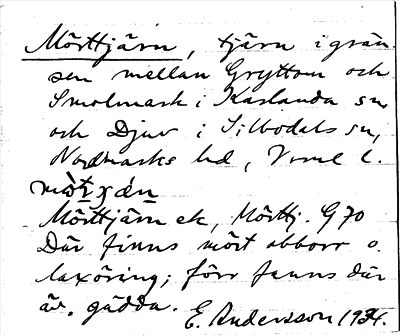 Mörttjärn, tjärn i grän-
sen mellan Gryttom och
Smolmark i Karlanda sn,
och Djuv i Silbodals sn,
Nordmarks hd, Vrml l.
Mörttjärn ek, Mörttj. G 70
Där finns mört abborr o.
laxöring; förr fanns där
äv. gädda. E. Andersson 1934.